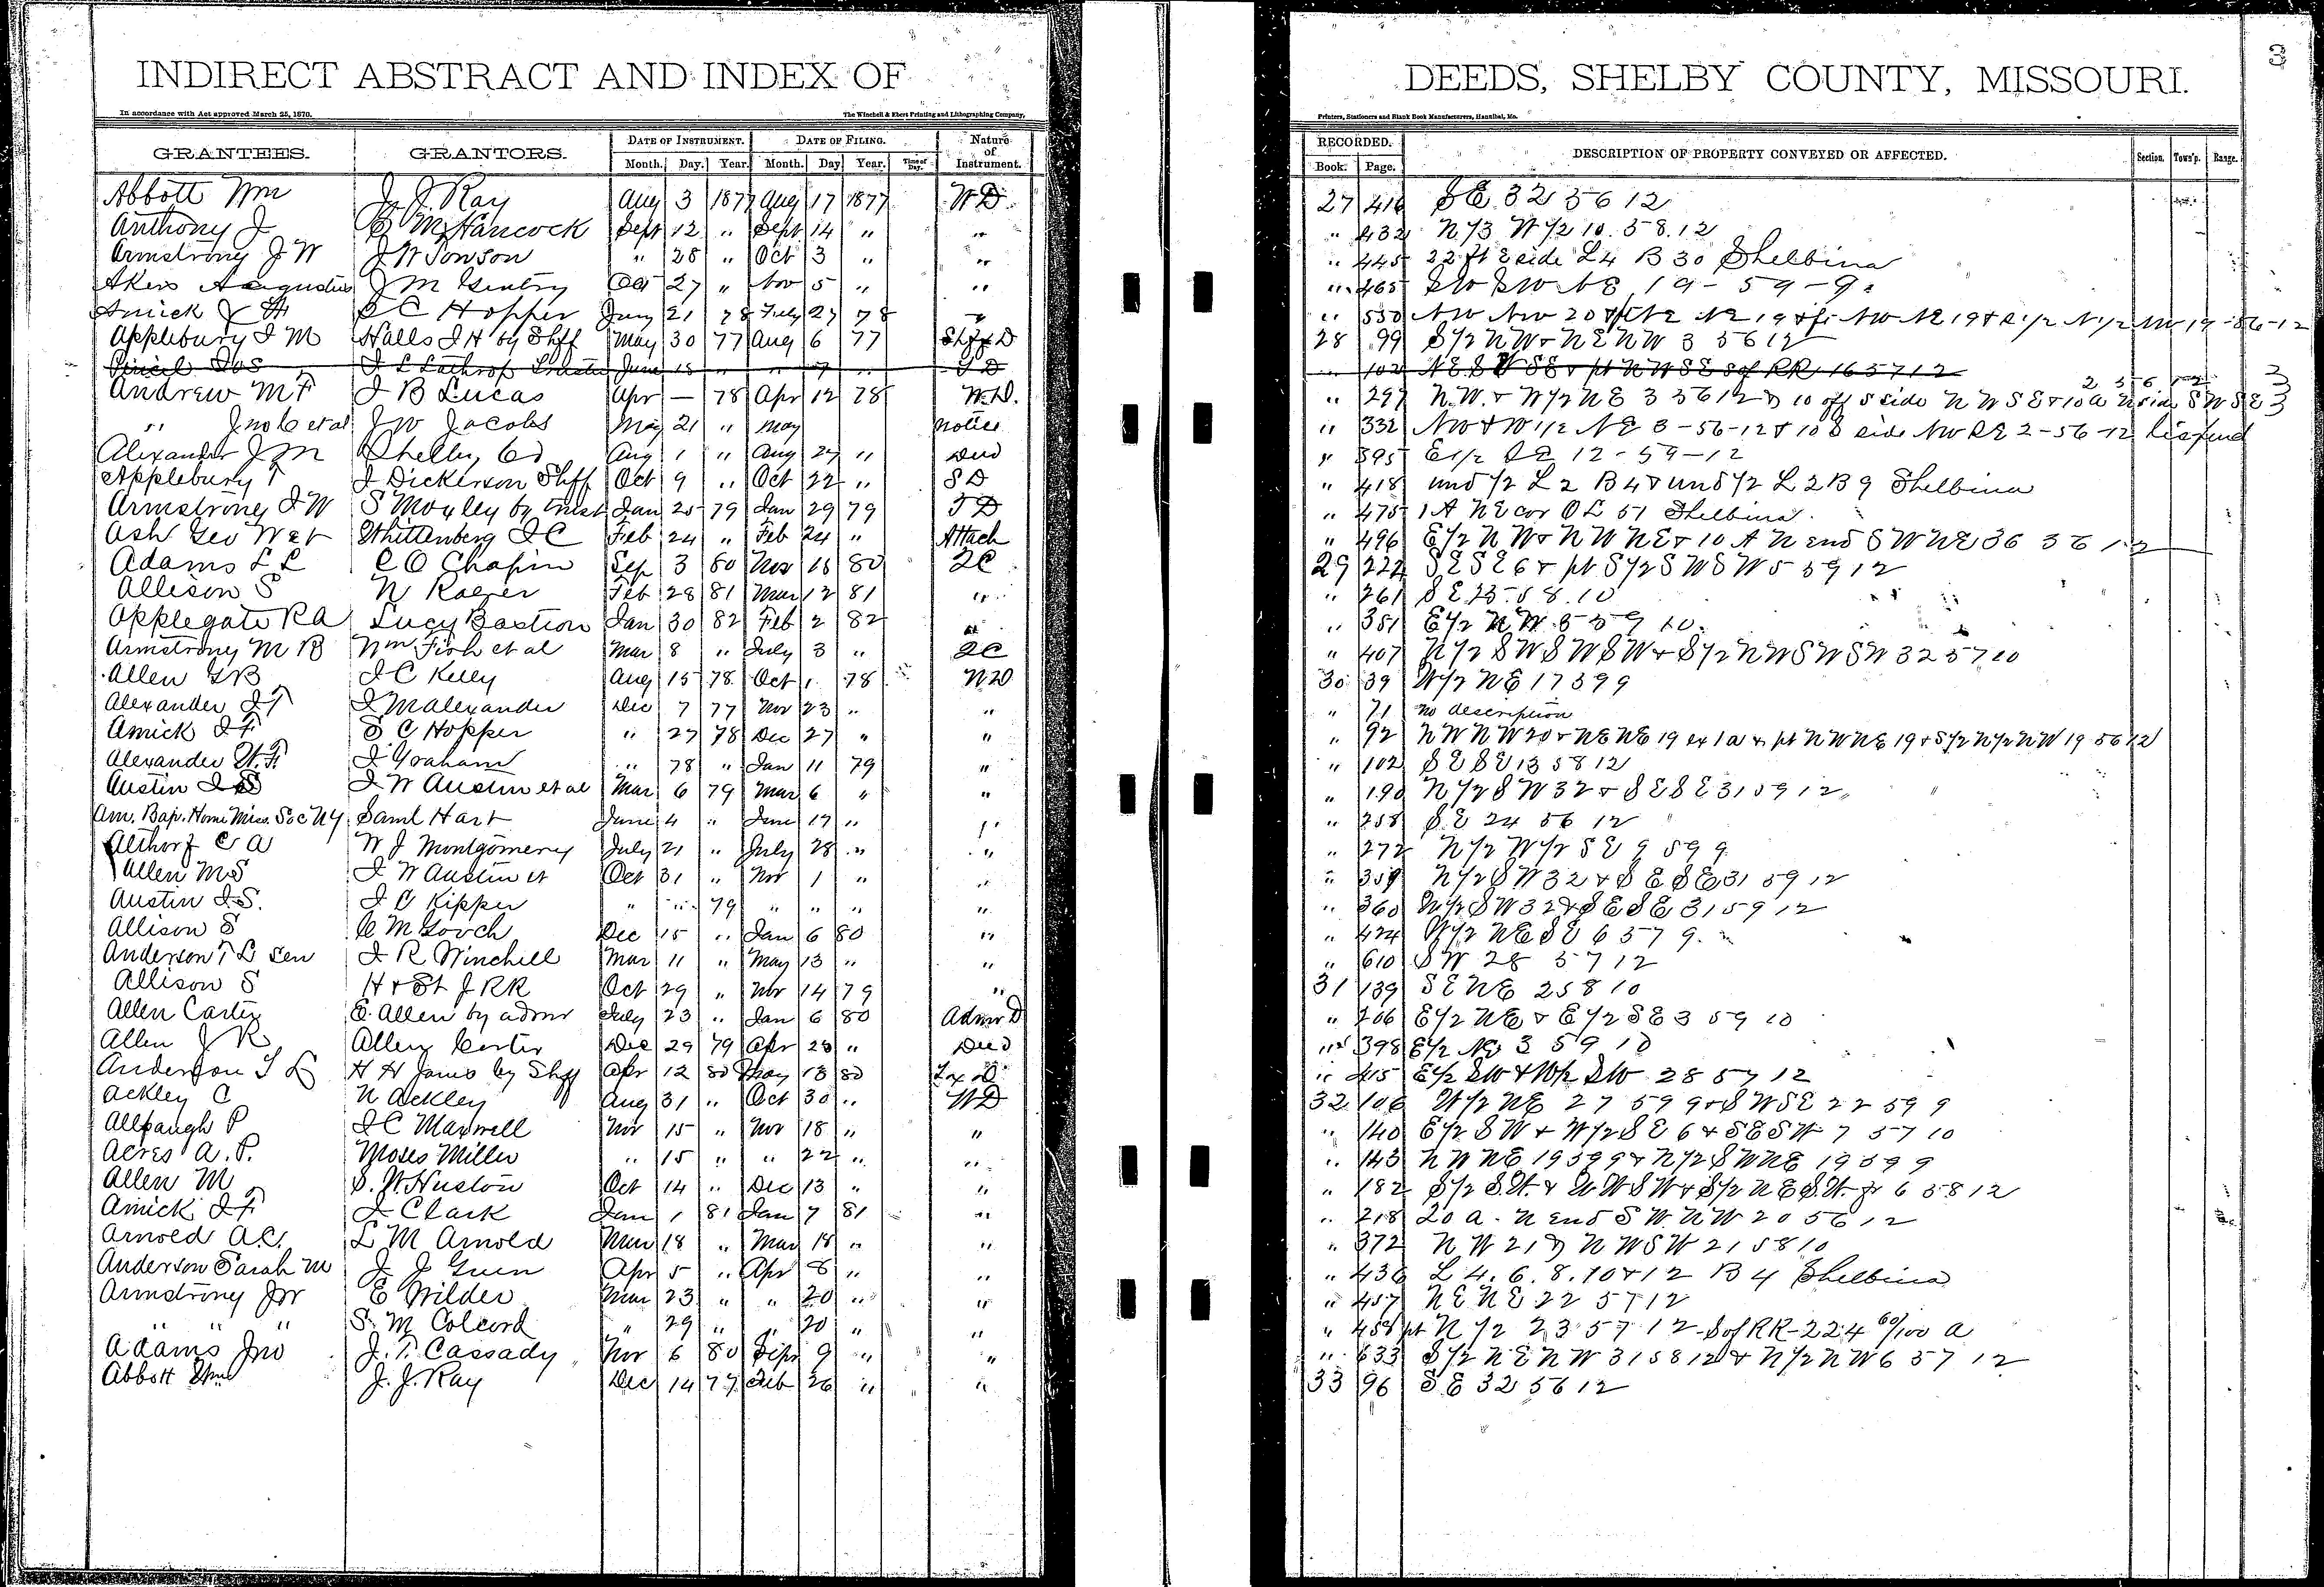 INDIRECT ABSTRACT AND INDEX OF DEEDS, SHELBY COUNTY, MISSOURI. 3
In accordance with Act approved March 25, 1870. The Winchell & Ebert Printing and Lithographing Company, Printers, Stationers and Blank Book Manufacturers, Hannibal, Mo.
GRANTEES. GRANTORS. DATE OF INSTRUMENT. DATE OF FILING. Nature of Instrument. RECORDED. DESCRIPTION OF PROPERTY CONVEYED OR AFFECTED. Section. Town'p. Range.
Month. Day. Year. Month. Day Year. Time of Day. Book. Page.
Abbott Wm J. J. Ray Aug 3 1877 Aug 17 1877 W D 27 416 S E 32 56 12
Anthony J M Hancock Sept 12 " Sept 14 " " " 432 N 1/3 W 1/2 10. 58. 12
Armstrong J W J W Towson " 28 " Oct 3 " " " 445 22 ft E side L4 B 30 Shelbina
Akers Augustus J M Gentry Oct 27 " Nov 5 " " " 465 SW SW NE 19 - 59 - 9
Amick J H S C Hopper 21 78 27 78 " " 550 NW NW 20 & NE NE 19 & NW NE 19 & S 1/2 N 1/2 NW 19 - 56 - 12
Applebury J M Halls J H by Shff May 30 77 Aug 6 77 Shff D 28 99 S 1/2 NW & NE NW 3 56 12
J L Lathrop Trustee June 18 " " 7 " T D " 102 NE SW SE & pt NW SE S of RR 16 57 12
Andrew M F J B Lucas Apr — 78 Apr 12 78 W. D. " 297 N. W. & W 1/2 NE 3 56 12 & 10 off S side N W S E & 10 a N side S W S E 2 56 12
" Jno C et al J W Jacobs May 21 " May Notice " 332 NW & W 1/2 NE 3-56-12 & 10 S side NW SE 2-56-12 Lis pend
Alexander J M Shelby Co Aug 1 " Aug 24 " Deed " 395 E 1/2 SE 12-59-12
Applebury T J Dickerson Shff Oct 9 " Oct 22 " S D " 418 und 1/2 L 2 B 4 & und 1/2 L 2 B 9 Shelbina
Armstrong J W S Moxley by Trust Jan 25 79 Jan 29 79 T D " 475 1 A NE cor O L 51 Shelbina
Ash Geo W et Whittenberg J C Feb 24 " Feb 24 " Attach " 496 E 1/2 N W & N W N E & 10 A N end S W NE 36 56 12
Adams L L C O Chapin Sep 3 80 Nov 18 80 QC 29 222 S E S E 6 & pt S 1/2 S W S W 5 59 12
Allison S N Rager Feb 28 81 Mar 12 81 " " 261 S E 25. 58. 10
Applegate R A Lucy Bastion Jan 30 82 Feb 2 82 " " 351 E 1/2 N W 5 59 10.
Armstrong M B Wm Fish et al Mar 8 " July 3 " QC " 407 N 1/2 S W S W S W & S 1/2 N W S W S W 32 57 10
Allen G B J C Kelly Aug 15 78 Oct 1 78 W D 30 39 W 1/2 N E 17 59 9
Alexander J T J M Alexander Dec 7 77 Nov 23 " " " 71 no description
Amick J F S C Hopper " 27 78 Dec 27 " " " 92 N W N W 20 & N E N E 19 ex 1 a & pt N W N E 19 & S 1/2 N 1/2 N W 19 56 12
Alexander W. F. J Graham " 78 " Jan 11 79 " " 102 S E S E 13 58 12
Austin J S J W Austin et al Mar 6 79 Mar 6 " " " 190 N 1/2 S W 32 & S E S E 31 59 12
Am. Bap. Home Miss. Soc N Y Saml Hart June 4 " June 17 " " " 258 S E 24 56 12
Althorf C A W J Montgomery July 21 " July 28 " " " 272 N 1/2 W 1/2 S E 9 59 9
Allen M S J W Austin et Oct 31 " Nov 1 " " " 359 N 1/2 S W 32 & S E S E 31 59 12
Austin J. S. J C Kipper " " 79 " " " " " 360 N 1/2 S W 32 & S E S E 31 59 12
Allison S C M Gooch Dec 15 " Jan 6 80 " " 424 W 1/2 N E S E 6 57 9.
Anderson T L Sen J R Winchell Mar 11 " May 13 " " " 610 S W 28 57 12
Allison S H & St J RR Oct 29 " Nov 14 79 " 31 139 S E N E 2 58 10
Allen Carter E. Allen by admr July 23 " Jan 6 80 Admr D " 206 E 1/2 N E & E 1/2 S E 3 59 10
Allen J R Allen Carter Dec 29 79 Apr 28 " Deed " 398 E 1/2 NE 3 59 10
Anderson T L H H James by Shff Apr 12 80 May 13 80 Tax D " 415 E 1/2 SW & W 1/2 SW 28 57 12
Ackley C N Ackley Aug 31 " Oct 30 " W D 32 106 W 1/2 N E 27 59 9 & S W S E 22 59 9
Allpaugh P J C Maxwell Nov 15 " Nov 18 " " " 140 E 1/2 S W & W 1/2 S E 6 & S E S W 7 57 10
Acres A. P. Moses Miller " 15 " " 22 " " " 143 N W N E 19 59 9 & N 1/2 S W N E 19 59 9
Allen M S. W. Huston Oct 14 " Dec 13 " " " 182 S 1/2 S. W. & S W & S 1/2 N E S. W. 6 58 12
Amick J F J Clark Jan 1 81 Jan 7 81 " " 218 20 a. N end S W. N W 20 56 12
Arnold A. C. L M Arnold Mar 18 " Mar 18 " " " 372 N W 21 & N W S W 21 58 10
Anderson Sarah M J J Green Apr 5 " Apr 8 " " " 436 L 4. 6. 8. 10 & 12 B 4 Shelbina
Armstrong J W E Wilder Mar 23 " " 20 " " " 457 N E N E 22 57 12
" " " S. M Colcord " 29 " " 20 " " " 458 pt N 1/2 23 57 12 S of RR - 224 60/100 a
Adams Jno J. T. Cassady Nov 6 80 Sept 9 " " " 633 S 1/2 N E N W 31 58 12 & N 1/2 N W 6 57 12
Abbott Wm J. J. Ray Dec 14 77 Feb 26 " " 33 96 S E 32 56 12